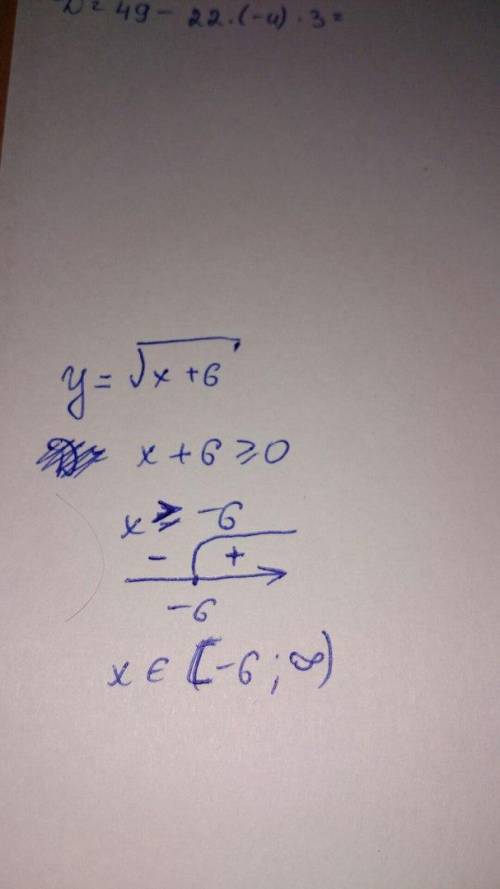 D = 49 - 22 · (-4) · 3 =
y = √x + 6
x + 6 ⩾ 0
x ⩾ -6
- +
-6
x ∈ [-6 ; ∞)